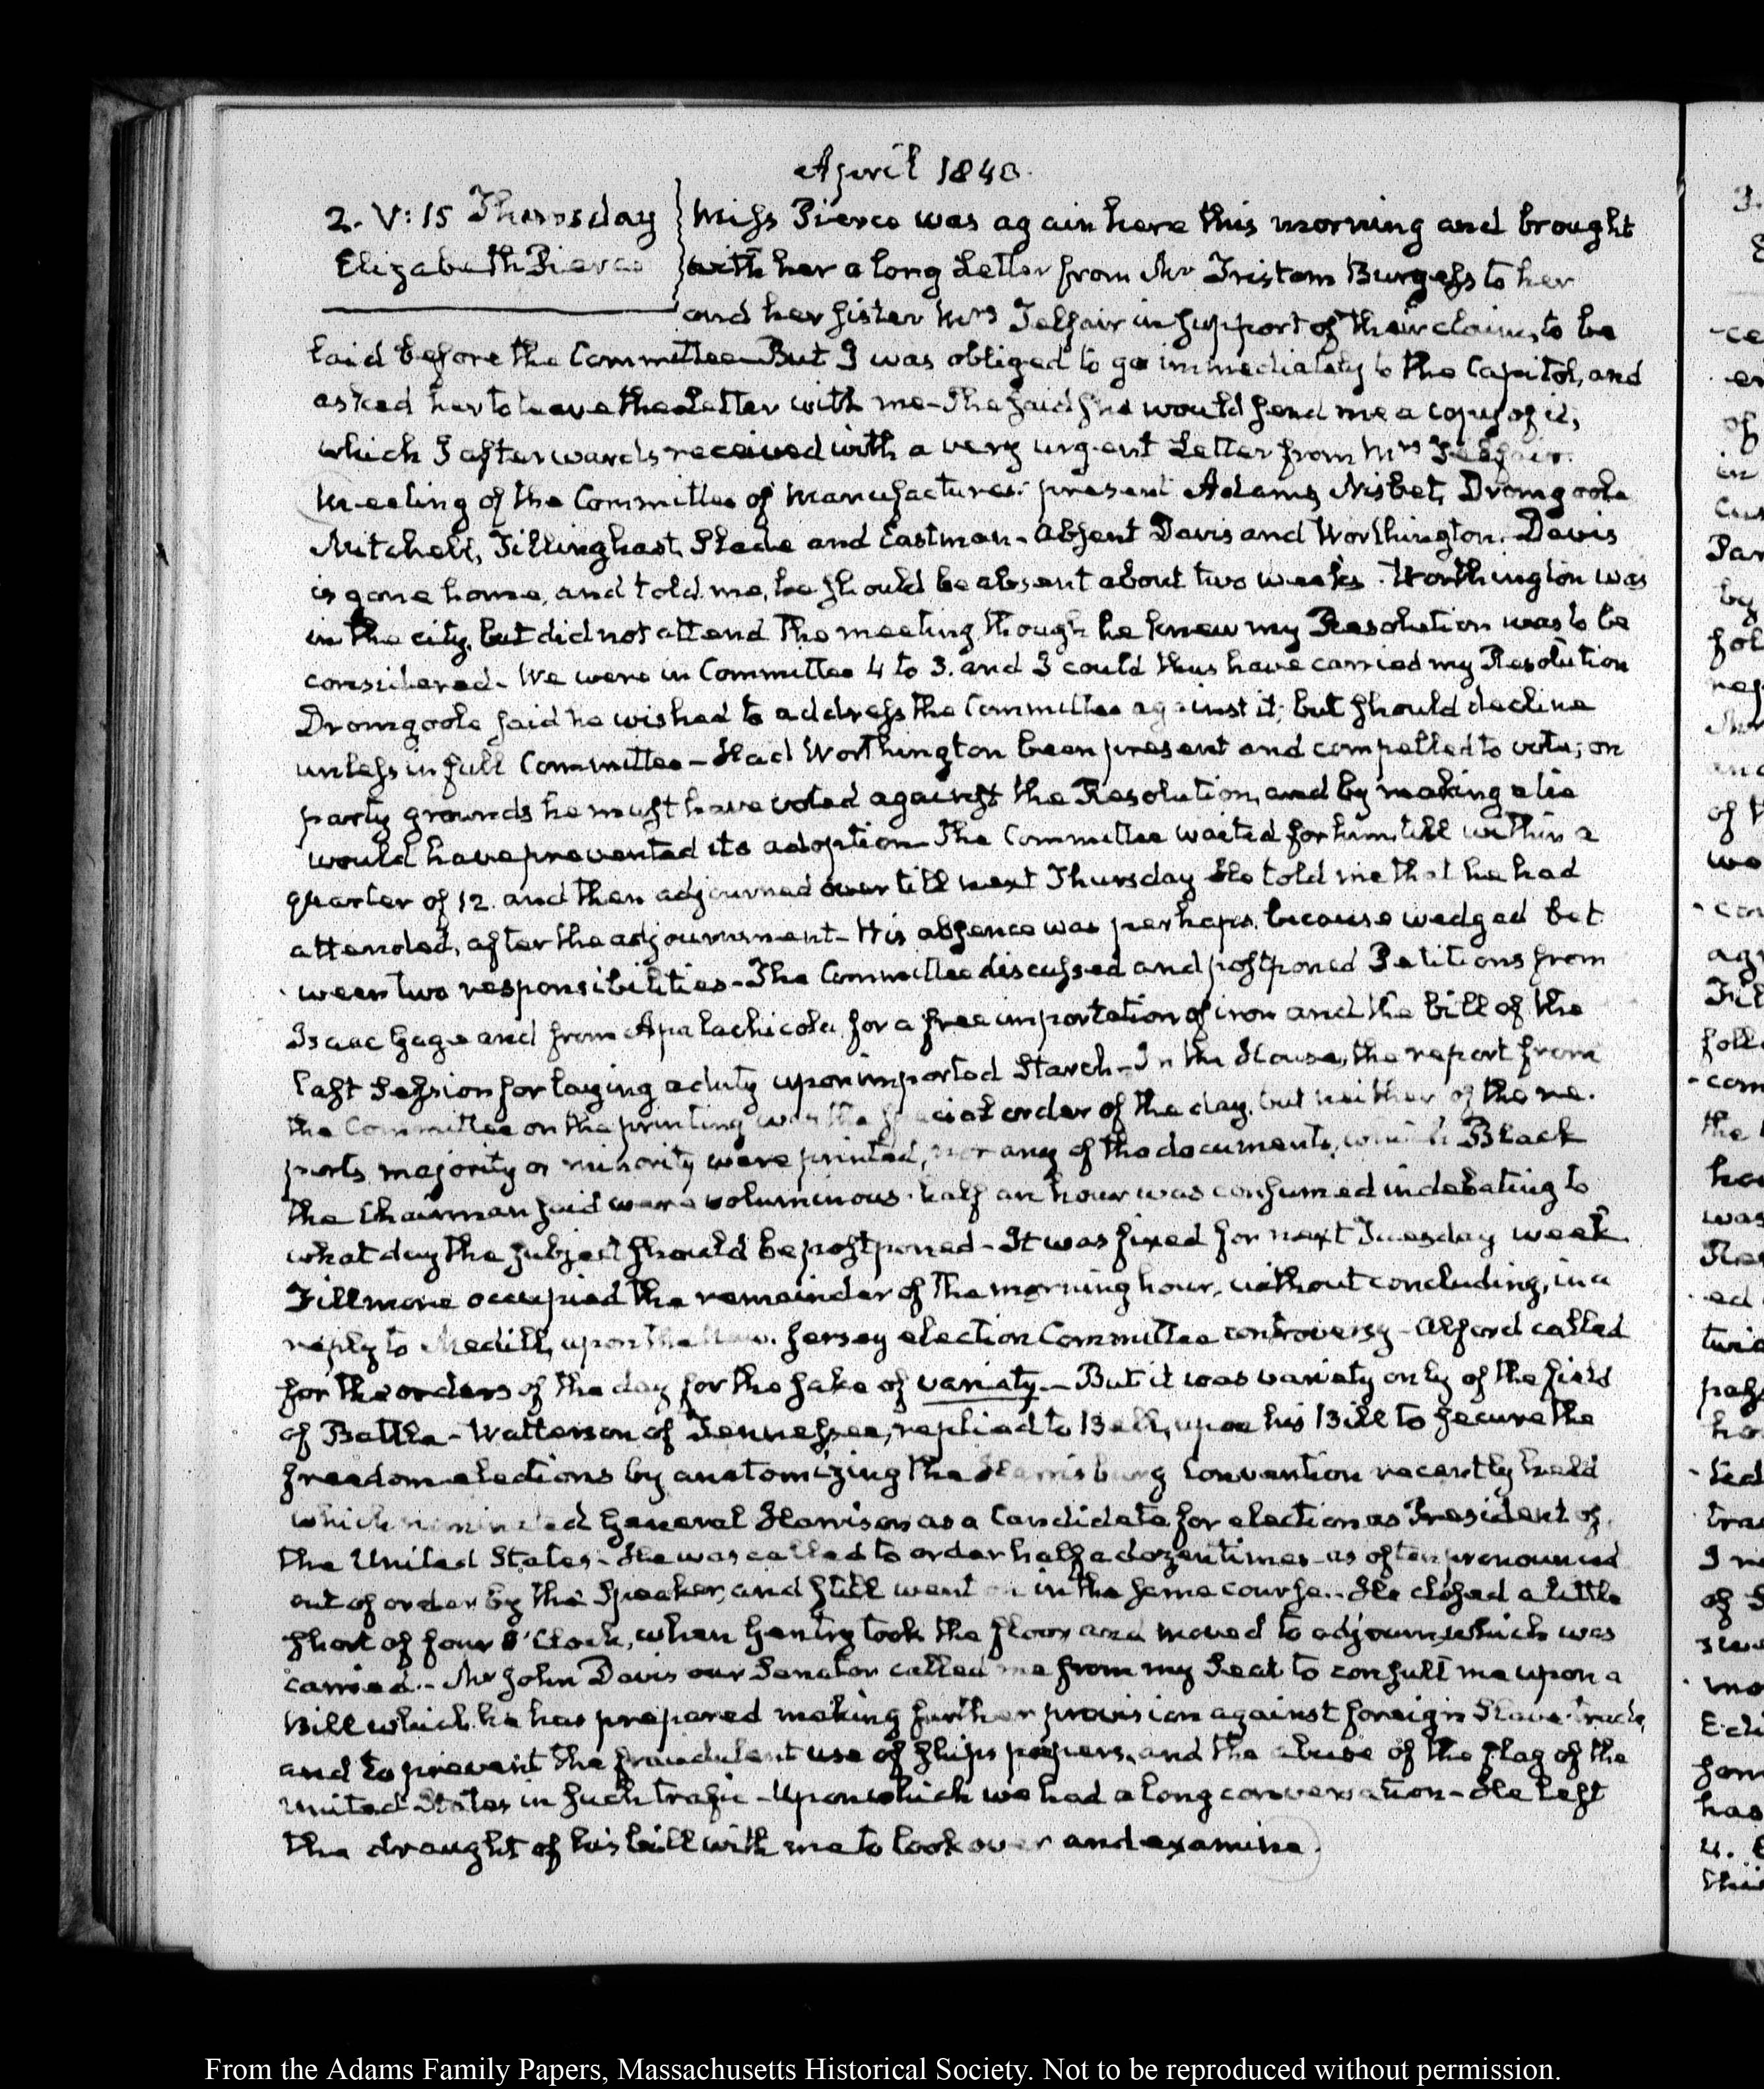 April 1840.
2. V:15 Thursday
Elizabeth Pierce
Miss Pierce was again here this morning and brought
with her a long Letter from Mr Tristam Burgess to her
and her sister Mrs Telfair in support of their claim, to be
laid before the Committee—But I was obliged to go immediately to the Capitol, and
asked her to leave the Letter with me—She said she would send me a copy of it,
which I afterwards received with a very urgent Letter from Mrs Telfair.
Meeting of the Committee of Manufactures: present Adams, Nisbet, Dromgoole
Mitchell, Tillinghast, Slade and Eastman—Absent Davis and Worthington. Davis
is gone home, and told me, he should be absent about two weeks. Worthington was
in the city, but did not attend the meeting though he knew my Resolution was to be
considered—We were in Committee 4 to 3. and I could thus have carried my Resolution
Dromgoole said he wished to address the Committee against it; but should decline
unless in full Committee—Had Worthington been present and compelled to vote, on
party grounds he must have voted against the Resolution, and by making a tie
would have prevented its adoption—The Committee waited for him till within a
quarter of 12. and then adjourned over till next Thursday He told me that he had
attended, after the adjournment—His absence was perhaps, because wedged bet
ween two responsibilities—The Committee discussed and postponed Petitions from
Isaac Gage and from Apalachicola for a free importation of iron and the bill of the
last Session for laying a duty upon imported Starch—In the House, the report from
the Committee on the printing was the special order of the day, but neither of the re-
ports majority or minority were printed, nor any of the documents, which Black
the Chairman said were voluminous. half an hour was consumed in debating to
what day the subject should be postponed—It was fixed for next Tuesday week.
Fillmore occupied the remainder of the morning hour, without concluding, in a
reply to Medill, upon the New. Jersey election Committee controversy—Alford called
for the orders of the day for the sake of variety—But it was variety only of the field
of Battle—Watterson of Tennessee, replied to Bell, upon his Bill to secure the
freedom elections by anatomizing the Harrisburg Convention recently held
which nominated General Harrison as a Candidate for election as President of
the United States—He was called to order half a dozen times—as often pronounced
out of order by the Speaker, and still went on in the same course. He closed a little
short of four O'Clock, when Gentry took the floor and moved to adjourn, which was
carried.—Mr John Davis our Senator called me from my Seat to consult me upon a
Bill which he has prepared making further provision against foreign Slave-trade,
and to prevent the fraudulent use of ships papers, and the abuse of the flag of the
United States in such trafic—Upon which we had a long conversation—He left
the draught of his bill with me to look over and examine.
From the Adams Family Papers, Massachusetts Historical Society. Not to be reproduced without permission.